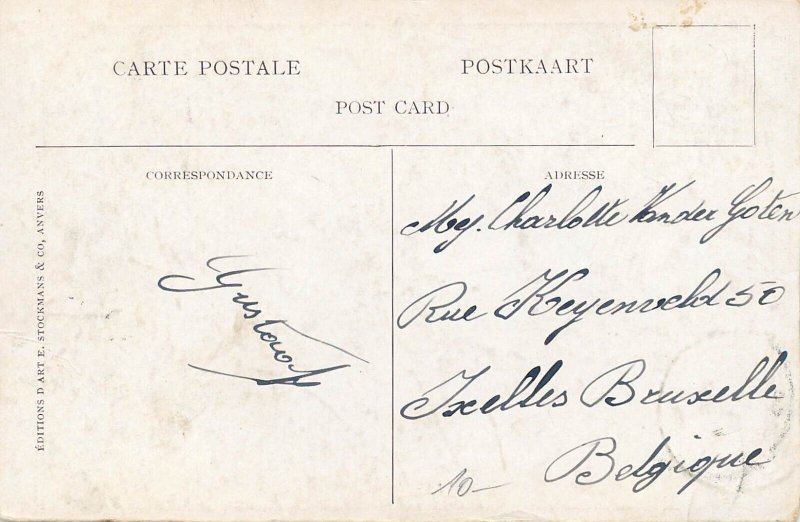 CARTE POSTALE
POSTKAART
POST CARD
CORRESPONDANCE
ADRESSE
ÉDITIONS D'ART E. STOCKMANS & CO, ANVERS
Gustaaf
Mej. Charlotte Vander Goten
Rue Keyenveld 50
Ixelles Bruxelle
Belgique
10-